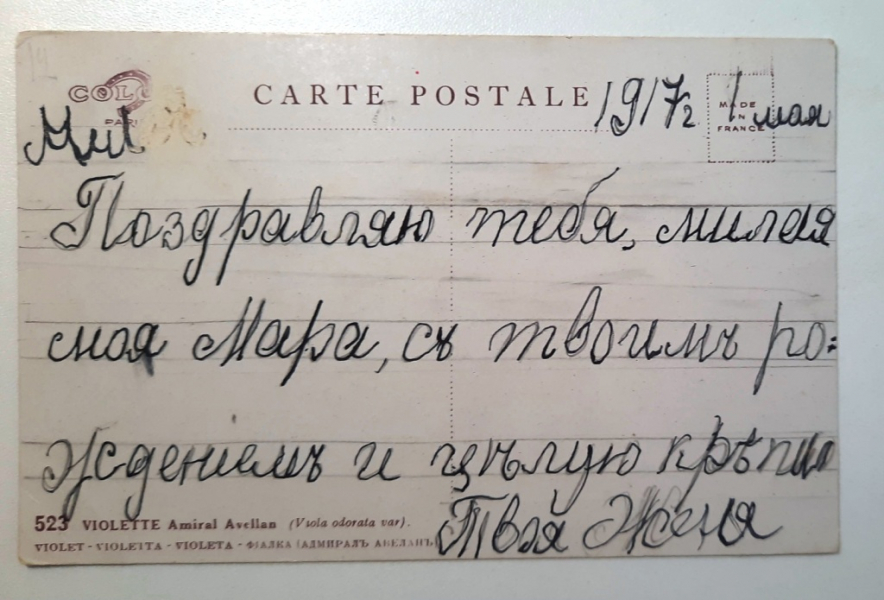 CARTE POSTALE
1917 г. 1 мая
MADE
IN
FRANCE
PARIS
Мил
Поздравляю тебя, милая
моя Мара, съ твоимъ ро=
жденіемъ и цѣлую крѣпко
Твоя Женя
523 VIOLETTE Amiral Avellan (Viola odorata var).
VIOLET - VIOLETTA - VIOLETA - ФІАЛКА (АДМИРАЛЪ АВЕЛАНЪ)